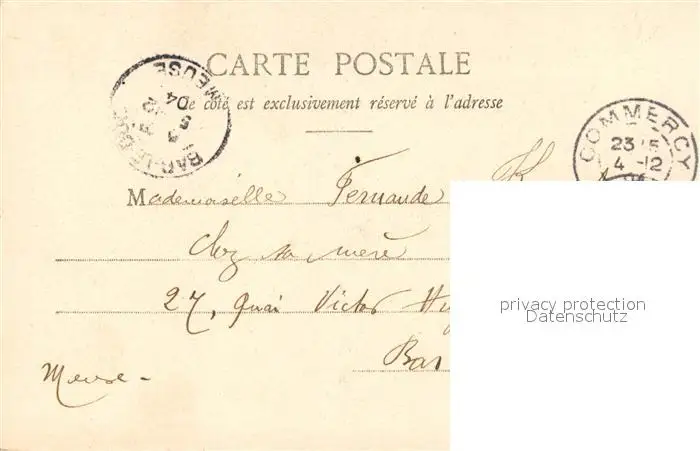 CARTE POSTALE
Ce côté est exclusivement réservé à l'adresse
BAR-LE-DUC
MEUSE
04
COMMERCY
23
4 -12
Mademoiselle Fernande
Chez sa mère
27, Quai Victor Hu
Bar
Meuse -
privacy protection
Datenschutz